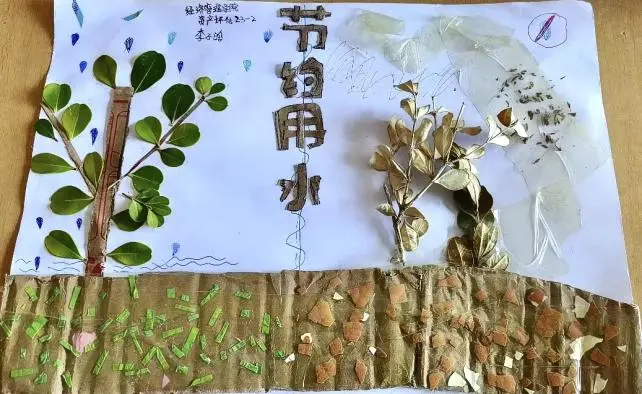 经济管理学院
资产评估23-2
李子
节约用水